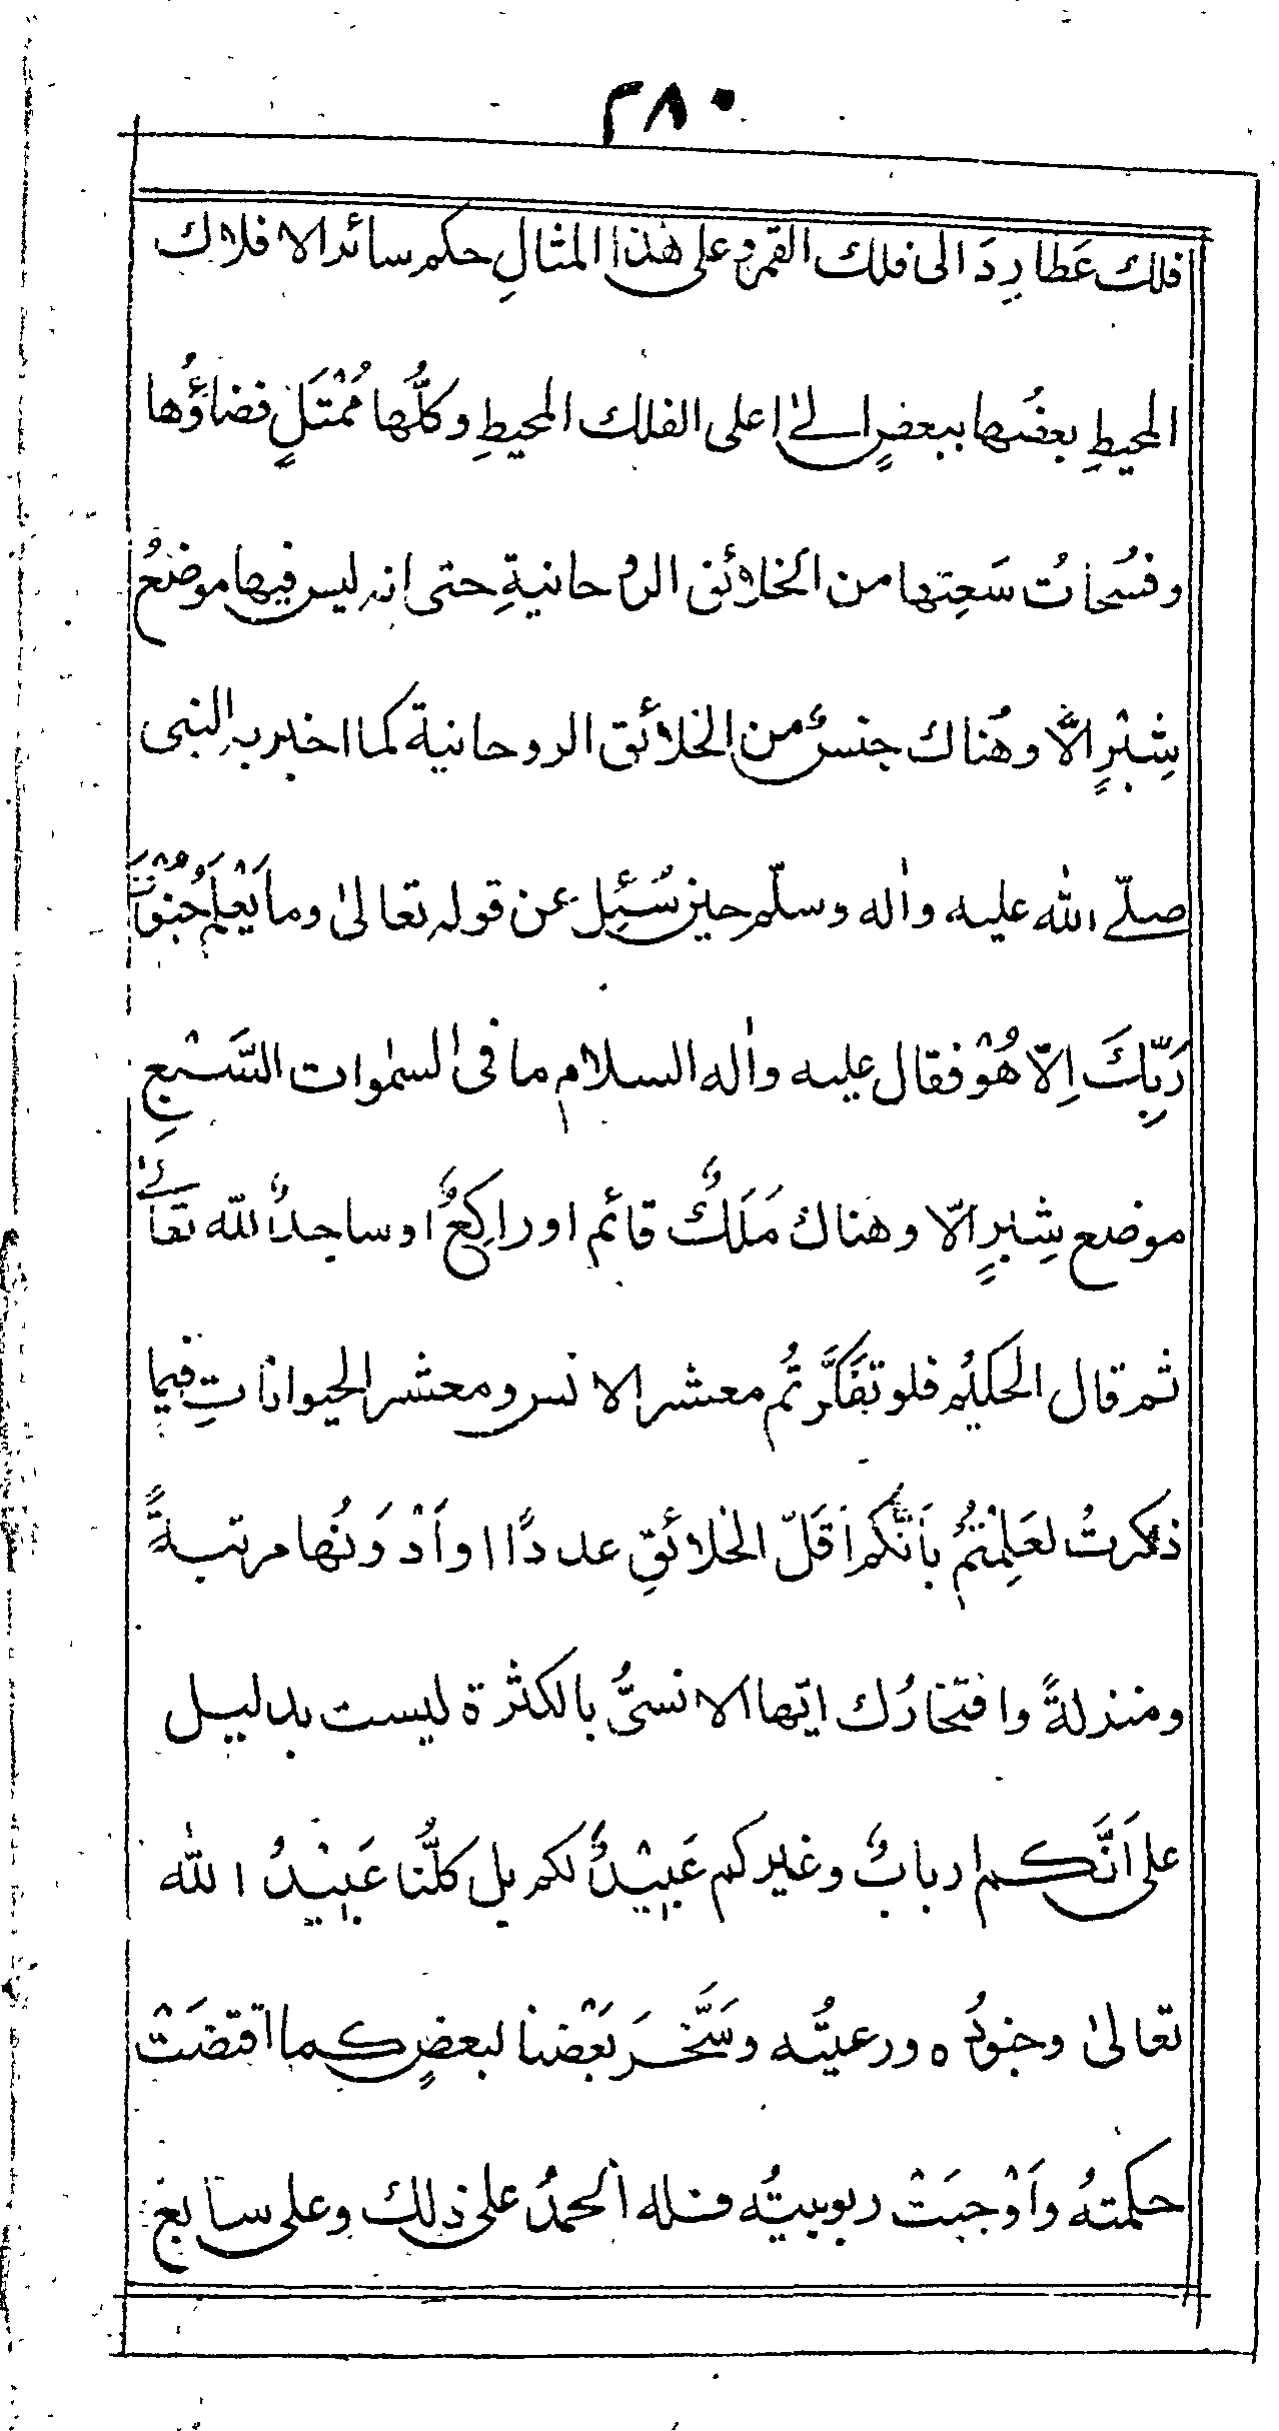 ٢٨٠
فلك عَطارِدَ الى فلك القمر و على هٰذا المثالِ حكم سائر الافلاك
المحيطِ بعضُها ببعضٍ الىٰ اعلى الفلك المحيطِ وكلُّها مُمْتَلٍ فضاؤُها
وفسُحاتُ سَعِتها من الخلائق الروحانيةِ حتى انه ليس فيها موضعُ
شِبْرٍ الَّا وهُناك جنسٌ من الخلائق الروحانية كما اخبر به النبى
صلّے الله عليه واٰله وسلّم حين سُئِل عن قوله تعالىٰ وما يَعْلَمُ جُنُوْدَ
رَبِّكَ اِلّا هُوْ فقال عليه واٰله السلام ما فى السمٰوات السَّبْعِ
موضع شِبْرٍ الّا وهناك مَلَكٌ قائم او راكِعٌ او ساجدٌ لله تعالےٰ
ثم قال الحكيُم فلو تَفَكَّرتُم معشر الانس ومعشر الحيواناتِ فيما
ذكرتُ لعَلِمْتُم بأَنَّكم أَقَلّ الخلائقِ عددًا او أَدْوَنُها مرتبةً
ومنزلةً وافتخارُك ايّها الانسىُّ بالكثرة ليست بدليل
على أَنَّكم اربابٌ وغيركم عَبِيْدٌ لكم بل كلُّنا عَبِيْدُ الله
تعالىٰ وجنودُه ورعيتُه وسَّخَرَ بَعْضنا لبعضٍ كما اقتضَتْ
حكمتهُ وأَوْجبَتْ ربوبيتُه فله الحمدُ على ذلك وعلى سابغ